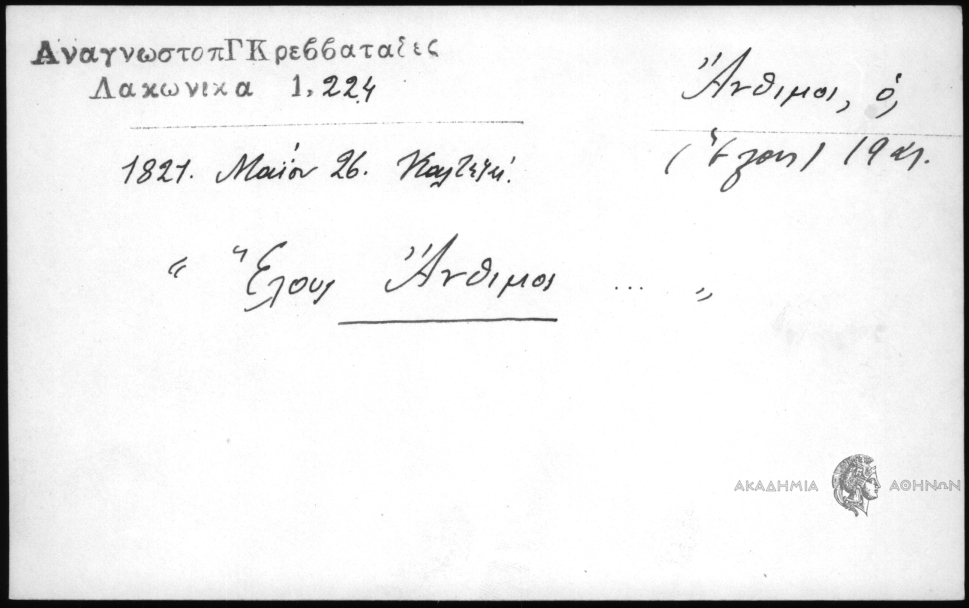 ΑναγνωστοπΓΚρεββαταδες
Λακωνικα 1, 224
Ἄνθιμος, ὁ,
(Ἕλους) 19 αι.
1821. Μαΐου 26. Καλτεζαί.
“ Ἕλους Ἄνθιμος ... „
ΑΚΑΔΗΜΙΑ ΑΘΗΝΩΝ